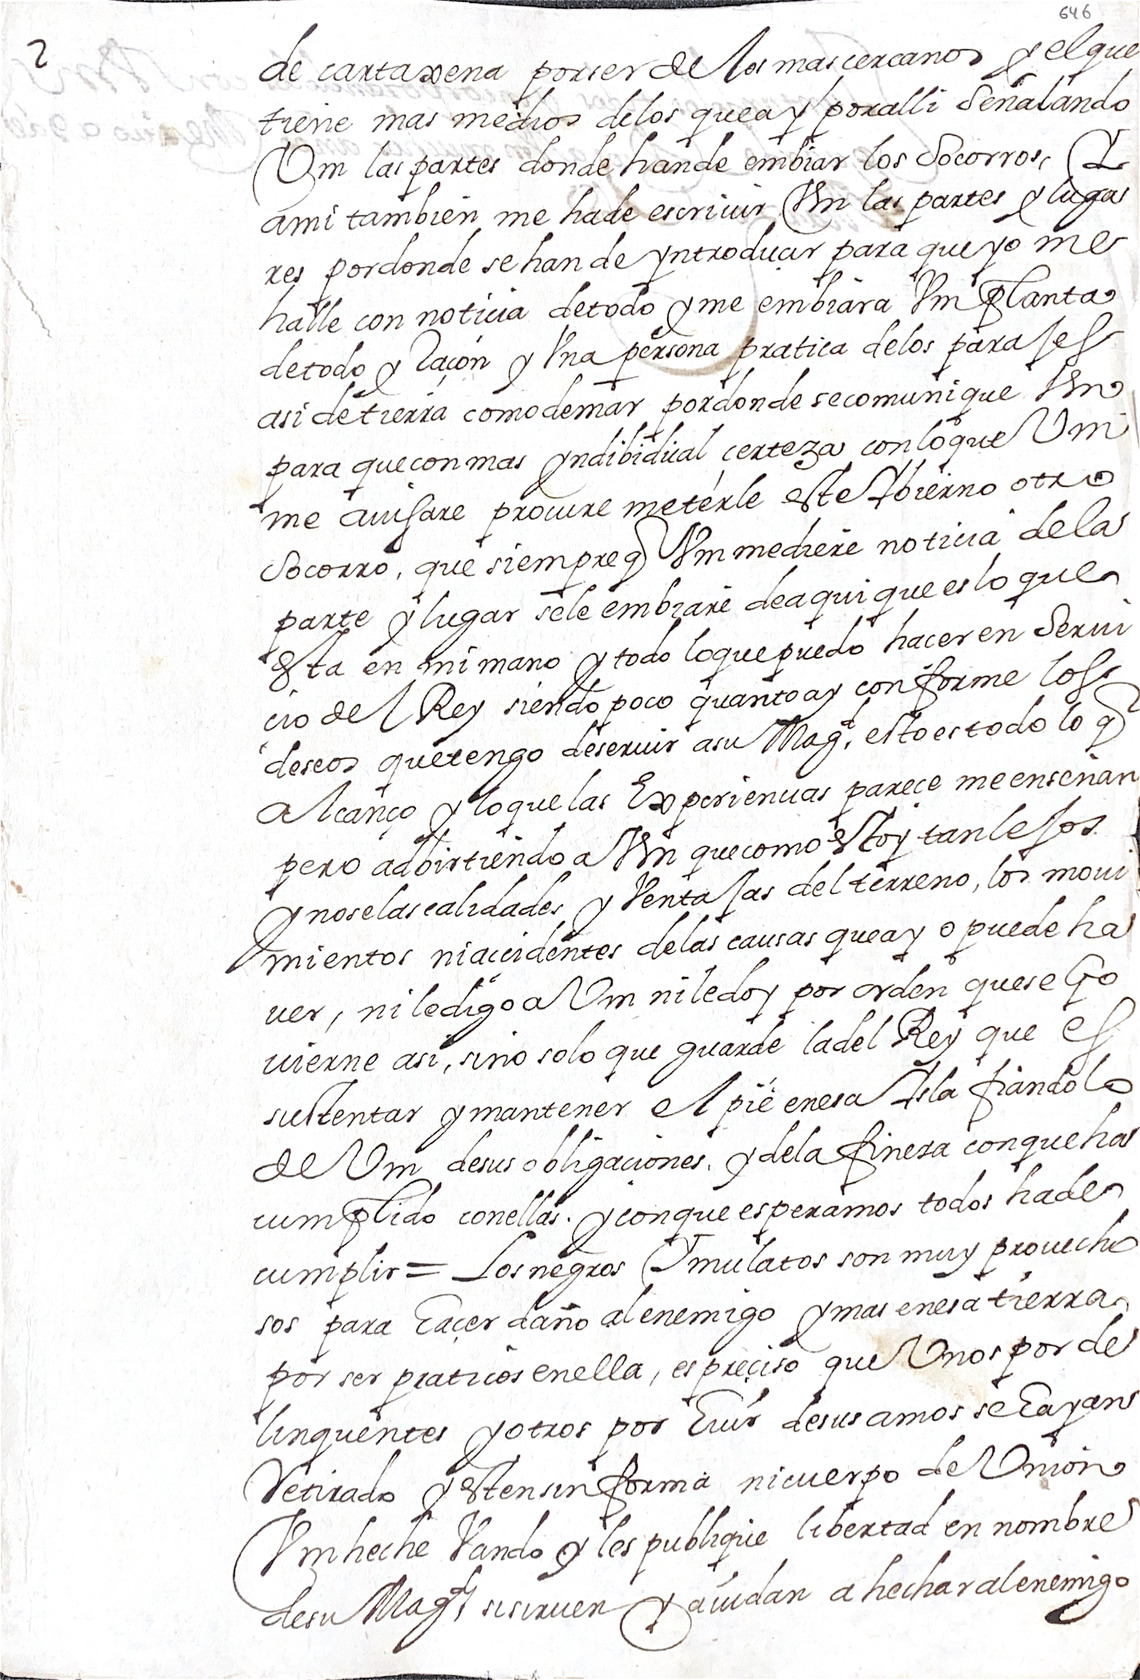 646
2
de cartaxena por ser de los mas cercanos y el que
tiene mas medios de los que ay y por alli señalando
Vm las partes donde hande embiar los socorros, Y
ami tambien me hade escriuir Vm las partes y luga
res por donde se han de yntroduçir para que yo me
halle con noticia de todo y me embiara Vm planta
de todo y raçon y Vna persona pratica de los parajes
asi de tierra como de mar por donde se comunique Vm
para que con mas yndibidual certeza con lo que Vm
me auisare procure meterle este gobierno otro
socorro, que siempre q Vm me diere noticia de la
parte y lugar sele embiare de aqui que es lo que
esta en mi mano y todo lo que puedo hacer en serui
cio del Rey siendo poco quanto ay conforme los
deseos que tengo deseruir a su Magd, esto es todo lo q
alcanço y lo que las Experiencias pareçe me enseñan
pero adbirtiendo a Vm que como estoy tan lejos
y no se las calidades y Ventajas del terreno, los moui
mientos ni accidentes de las causas que ay o puede ha
uer, ni le digo a Vm ni le doy por orden que se go
uierne asi, sino solo que guarde la del Rey que es
sustentar y mantener el pie en esa Isla fiandolo
de Vm de sus obligaciones, y de la fineza con que ha
cumplido con ellas. y con que esperamos todos hade
cumplir = Los negros Y mulatos son muy prouecho
sos para haçer daño al enemigo y mas en esa tierra
por ser praticos en ella, es preçiso que Vnos por de
linquentes y otros por huir de sus amos se hayan
retirado y esten sin forma ni cuerpo de Vnion
Vm heche Vando y les publique libertad en nombre
de su Magd si siruen y aiudan a hechar al enemigo